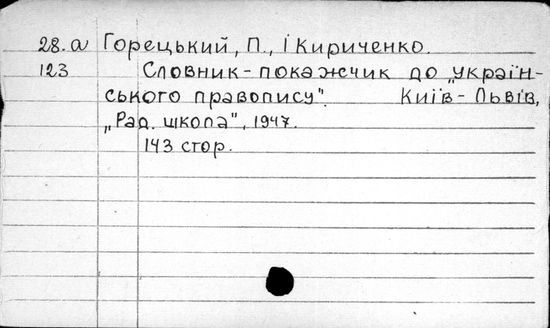 28.а Горецький, П., і Кириченко.
123 Словник-покажчик до „україн-
ського правопису". Київ-Львів,
„Рад. школа", 1947.
143 стор.